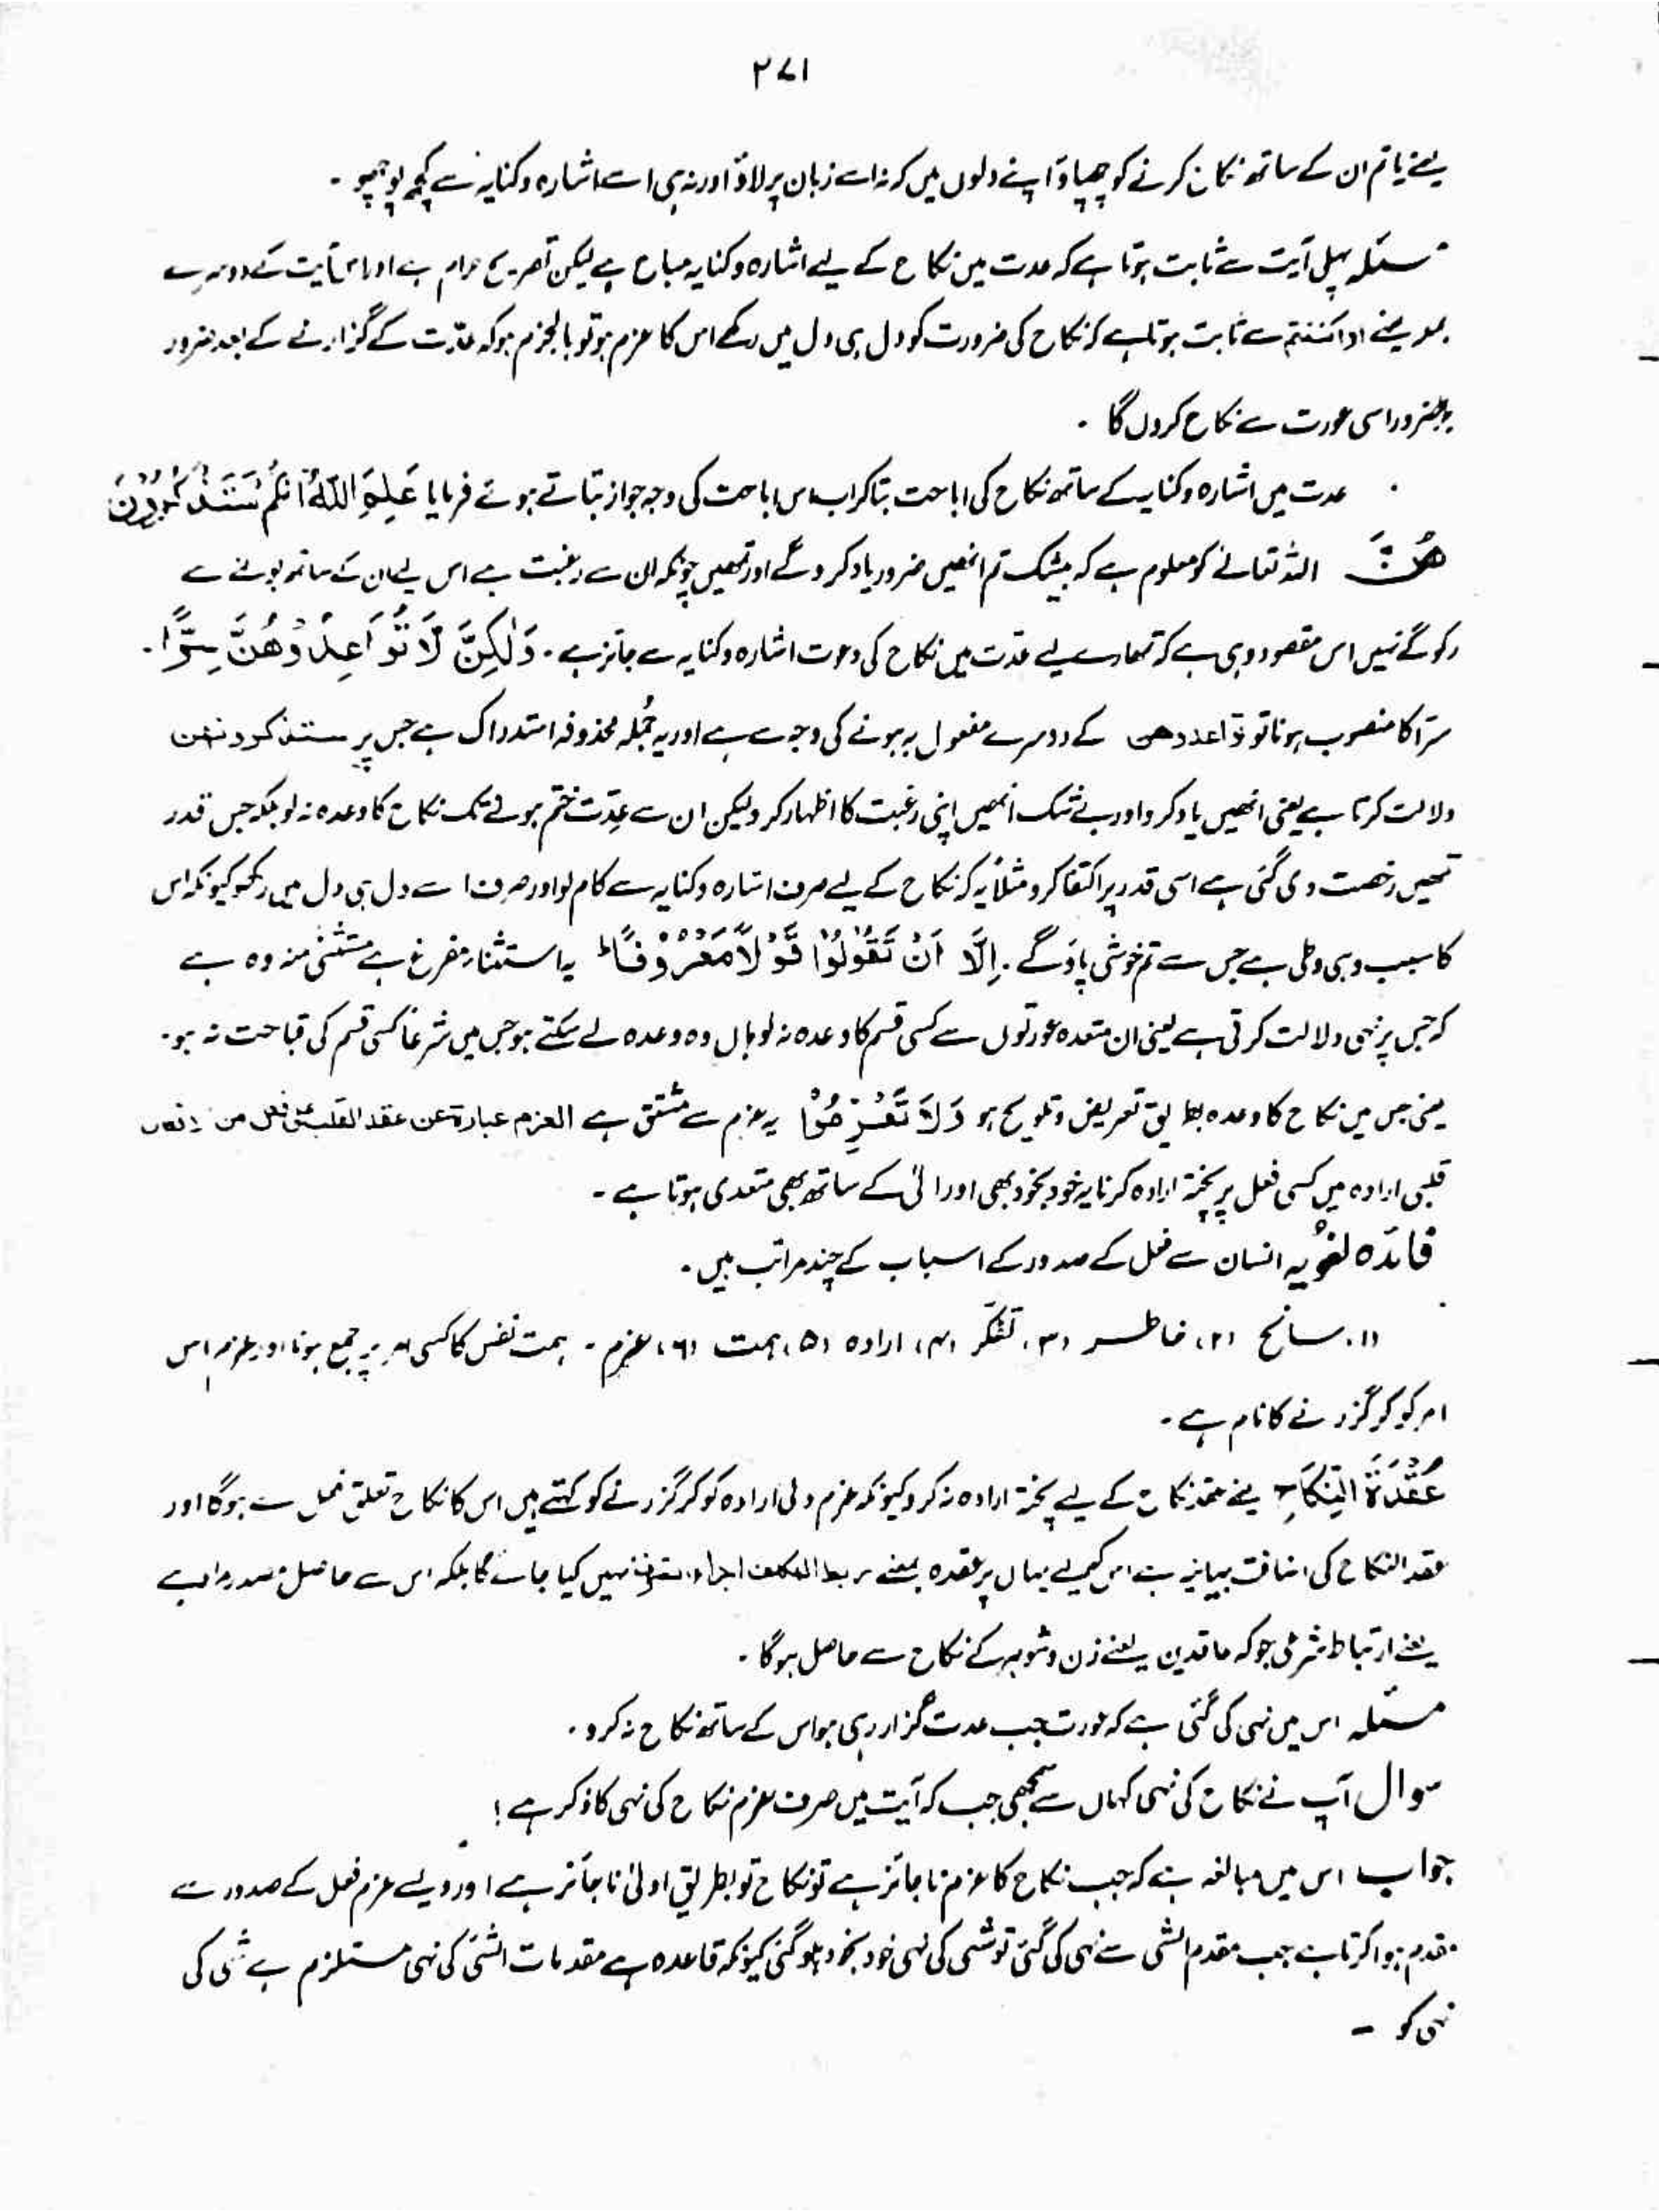 ۲۷۱
یعنے یا تم ان کے ساتھ نکاح کرنے کو چھپاؤ اپنے دلوں میں کہ نہ اسے زبان پر لاؤ اور نہ ہی اسے اشارہ وکنایہ سے کچھ پوچھو ۔
مسئلہ پہلی آیت سے ثابت ہوتا ہے کہ عدت میں نکاح کے لیے اشارہ وکنایہ مباح ہے لیکن تصریح حرام ہے اور اس آیت کے دوسرے
جملہ یعنے او اکننتم سے ثابت ہوتا ہے کہ نکاح کی ضرورت کو دل ہی دل میں رکھے اس کا عزم ہو تو بالجزم ہو کہ عدّت کے گزارنے کے بعد ضرور
بضرور اسی عورت سے نکاح کروں گا ۔
عدت میں اشارہ وکنایہ کے ساتھ نکاح کی اباحت بتا کر اب اس اباحت کی وجہ جواز بتاتے ہوئے فرمایا عَلِمَ اللّٰهُ اَنَّكُمْ سَتَذْكُرُوْنَ
هُنَّ اللّٰہ تعالٰے کو معلوم ہے کہ بیشک تم انھیں ضرور یاد کرو گے اور تمھیں چونکہ ان سے رغبت ہے اس لیے ان کے ساتھ بولنے سے
رکو گے نہیں اس مقصود وہی ہے کہ تمھارے لیے عدّت میں نکاح کی دعوت اشارہ وکنایہ سے جائز ہے ۔ وَلٰكِنَّ لَا تُوَاعِدُوْهُنَّ سِرًّا ۔
سرّاً کا منصوب ہونا تو تواعدوھن کے دوسرے مفعول بہ ہونے کی وجہ سے ہے اور یہ جُملہ محذوفہ استدراک ہے جس پر ستذکرونھن
دلالت کرتا ہے یعنی انھیں یاد کرو اور بے شک انھیں اپنی رغبت کا اظہار کرو لیکن ان سے عِدّت ختم ہونے تک نکاح کا وعدہ نہ لو بلکہ جس قدر
تمھیں رخصت دی گئی ہے اسی قدر پر اکتفا کرو مثلاً یہ کہ نکاح کے لیے صرف اشارہ وکنایہ سے کام لو اور صرف اسے دل ہی دل میں رکھو کیونکہ اس
کا سبب وہی وطی ہے جس سے تم خوشی پاؤ گے ۔ اِلَّا اَنْ تَقُوْلُوْا قَوْلًا مَّعْرُوْفًا ط یہ استثناء مفرغ ہے مستثنیٰ منہ وہ ہے
کہ جس پر نہی دلالت کرتی ہے یعنی ان متعدہ عورتوں سے کسی قسم کا وعدہ نہ لو ہاں وہ وعدہ لے سکتے ہو جس میں شرعاً کسی قسم کی قباحت نہ ہو ۔
یعنی جس میں نکاح کا وعدہ بطریق تعریض وتلویح ہو وَلَا تَعْزِمُوْا یہ عزم سے مشتق ہے العزم عبارة عن عقد القلب علی فعل من
قلبی ارادہ میں کسی فعل پر پختہ ارادہ کرنا یہ خود بخود بھی اور الیٰ کے ساتھ بھی متعدی ہوتا ہے ۔
فائدہ لغویہ انسان سے فعل کے صدور کے اسباب کے چند مراتب ہیں ۔
(۱) سانح (۲) خاطر (۳) تفکر (۴) ارادہ (۵) ہمت (۶) عزم ۔ ہمت نفس کا کسی امر پر جمع ہونا اور عزم اس
امر کو کر گزرنے کا نام ہے ۔
عُقْدَةَ النِّكَاحِ یعنے عقد نکاح کے لیے پختہ ارادہ نہ کرو کیونکہ عزم دلی ارادہ کو کر گزرنے کو کہتے ہیں اس کا نکاح تعلق فعل سے ہوگا اور
عقد النکاح کی اضافت بیانیہ ہے اس کے لیے یہاں پر عقدہ بمعنے ربط المکلف اجراء نہیں کیا جائے گا بلکہ اس سے حاصل مصدر مراد ہے
یعنے ارتباط شرعی جو کہ عاقدین یعنے زن وشوہر کے نکاح سے حاصل ہوگا ۔
مسئلہ اس میں نہی کی گئی ہے کہ عورت جب عدت گزار رہی ہو اس کے ساتھ نکاح نہ کرو ۔
سوال آپ نے نکاح کی نہی کہاں سے سمجھی جب کہ آیت میں صرف عزم نکاح کی نہی کا ذکر ہے !
جواب اس میں مبالغہ ہے کہ جب نکاح کا عزم ناجائز ہے تو نکاح تو بطریق اولیٰ ناجائز ہے اور ویسے عزم فعل کے صدور سے
مقدم ہوا کرتا ہے جب مقدم الشی سے نہی کی گئی تو شی کی نہی خود بخود ہو گئی کیونکہ قاعدہ ہے مقدمات الشی کی نہی مستلزم ہے شی کی
نہی کو ۔